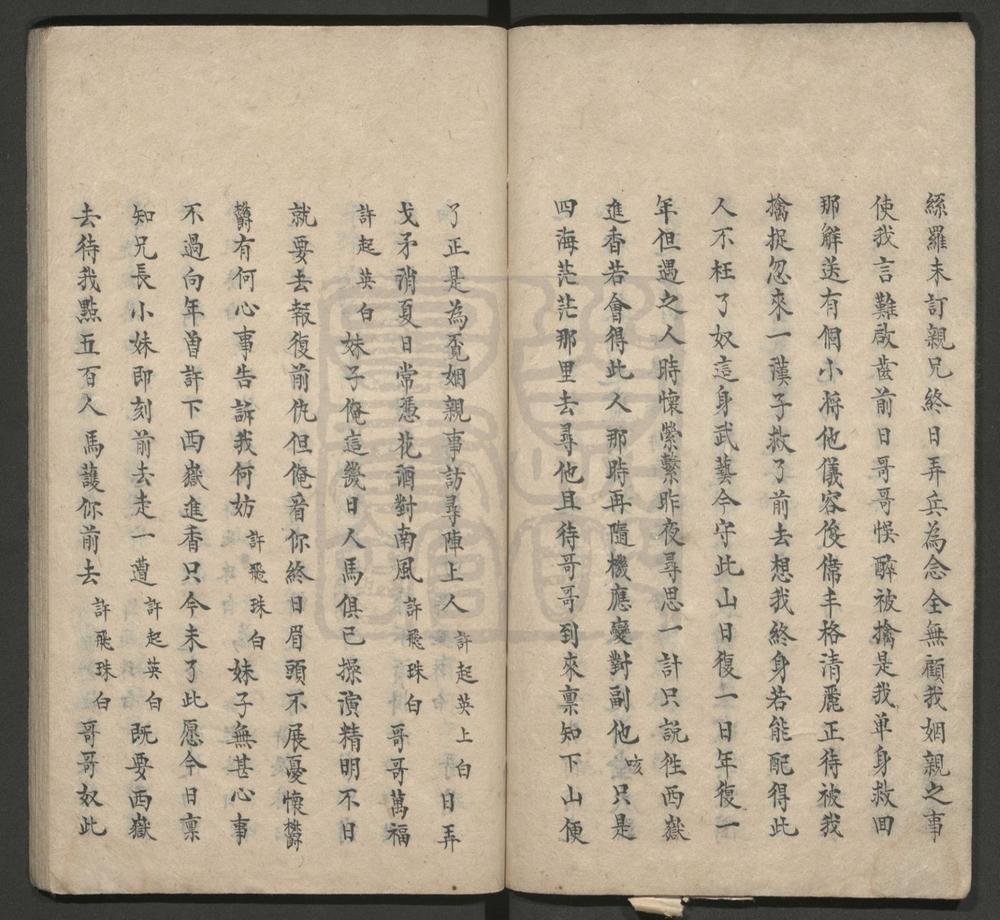 絲羅未訂親兄終日弄兵為念全無顧我姻親之事
使我言難啟齒前日哥哥悞醉被擒是我单身救回
那解送有個小將他儀容俊偹丰格清麗正待被我
擒捉忽來一漢子救了前去想我終身若能配得此
人不枉了奴這身武藝今守此山日復一日年復一
年但遇之人時懷縈繫昨夜尋思一計只説徃西嶽
進香若會得此人那時再隨機應變對副他咳只是
四海茫茫那里去尋他且待哥哥到來禀知下山便
了正是為覔姻親事訪尋陣上人許起英上白日弄
戈矛消夏日常憑花酒對南風許飛珠白哥哥萬福
許起英白妹子俺這幾日人馬俱已操演精明不日
就要去報復前仇但俺看你終日眉頭不展憂懷欝
欝有何心事告訴我何妨許飛珠白妹子無甚心事
不過向年曽許下西嶽進香只今未了此愿今日禀
知兄長小妹即刻前去走一遭許起英白既要西嶽
去待我點五百人馬護你前去許飛珠白哥哥奴此